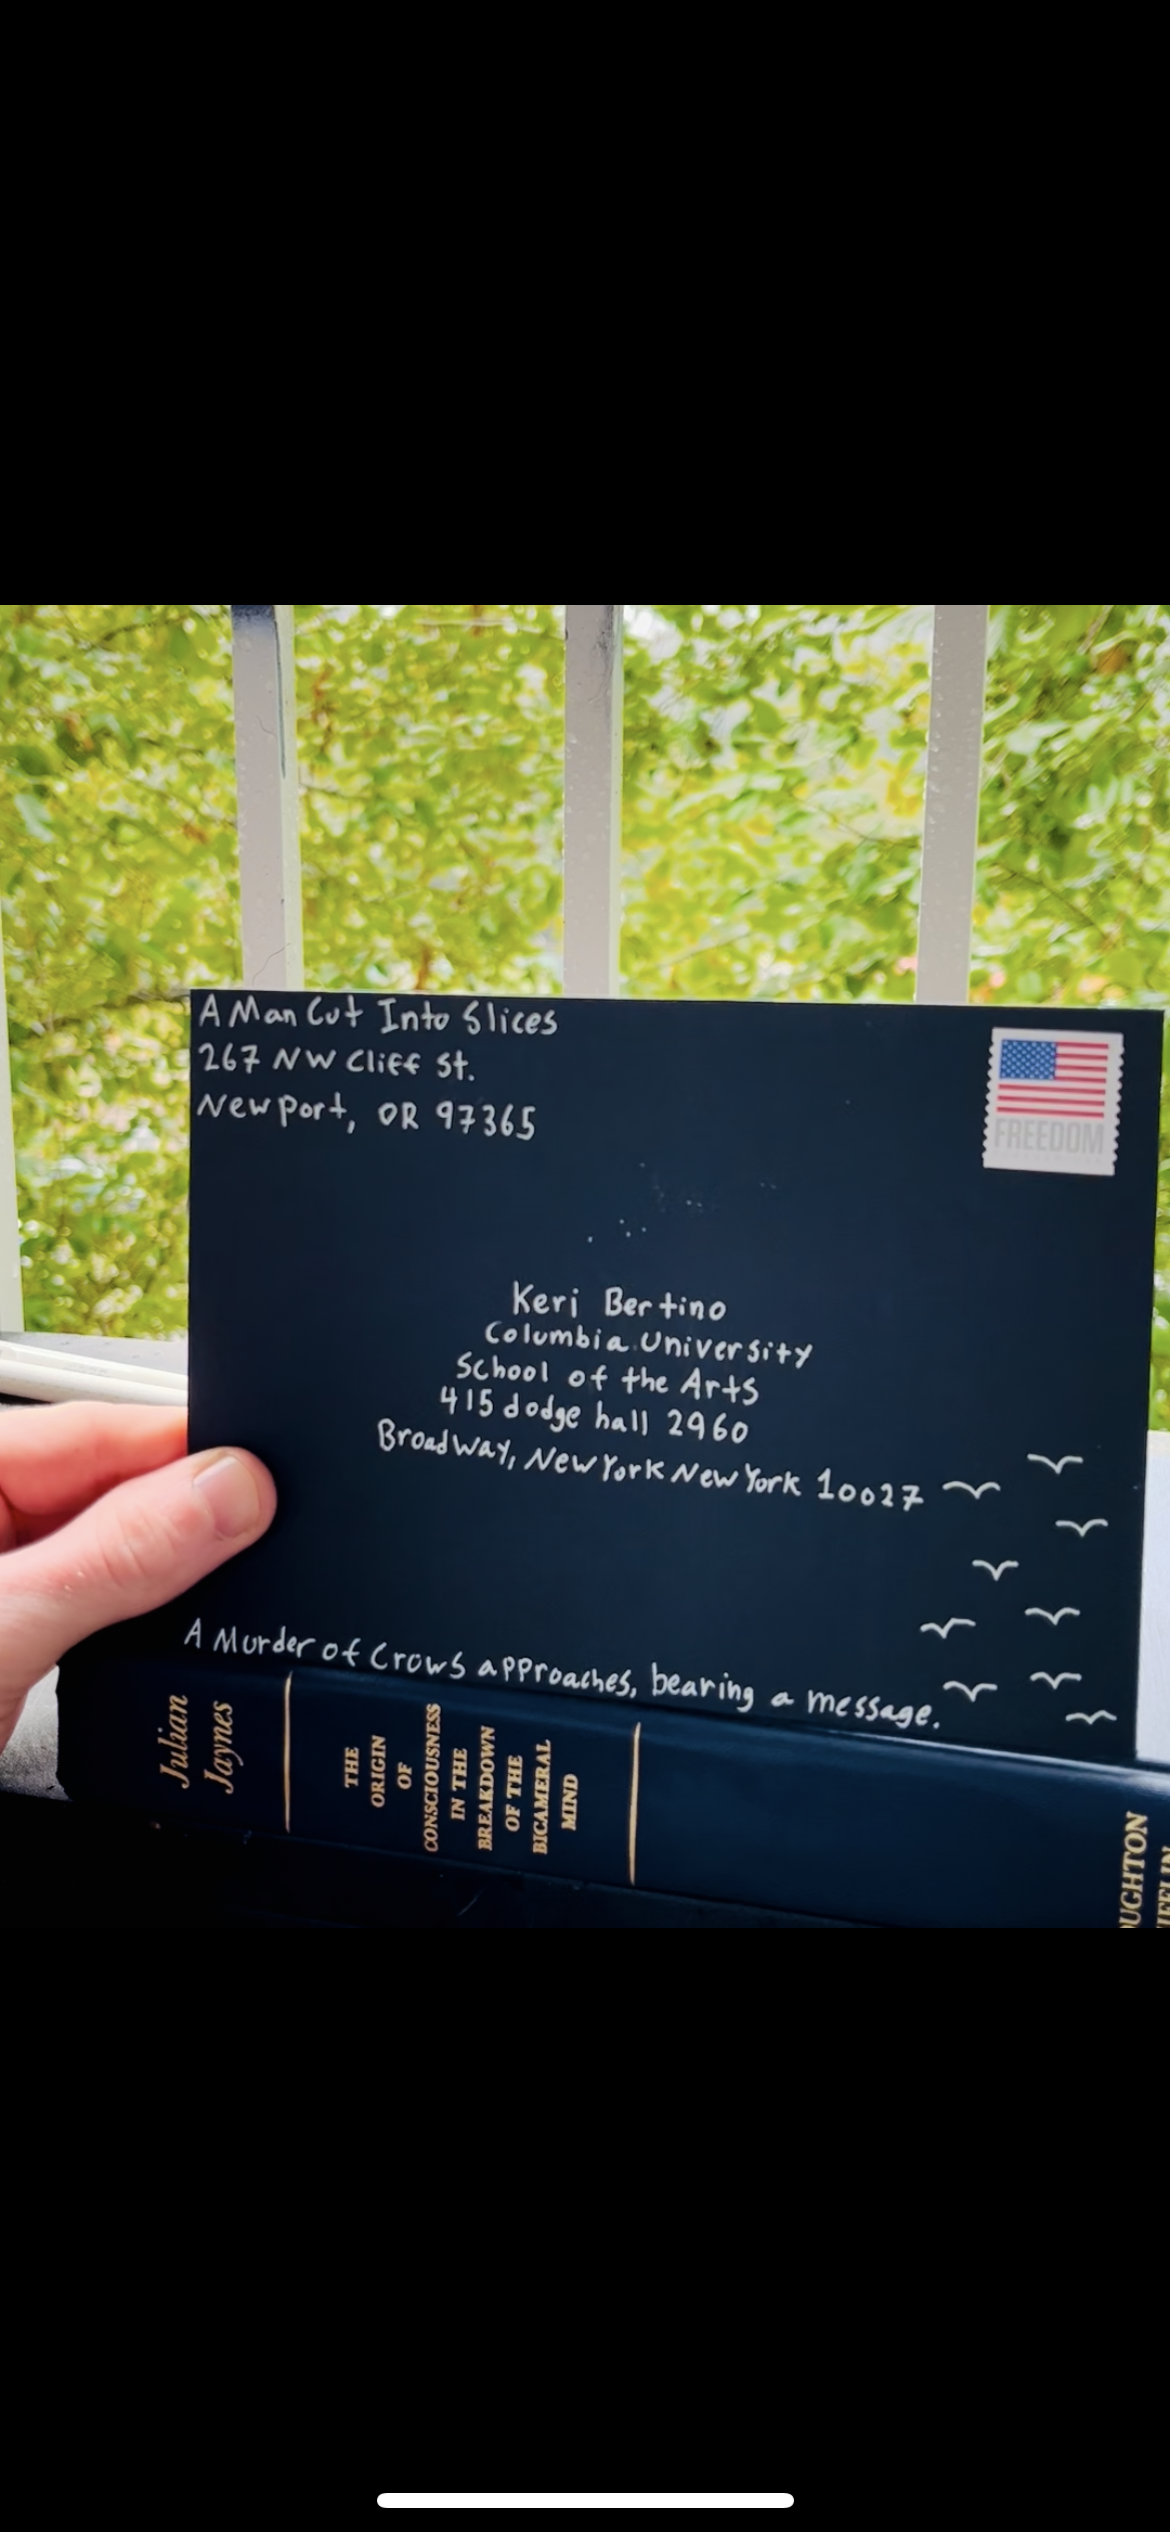 A Man Cut Into Slices
267 NW Cliff St.
Newport, OR 97365
FREEDOM
Keri Bertino
Columbia University
School of the Arts
415 dodge hall 2960
Broadway, New York New York 10027
A Murder of Crows approaches, bearing a message.
Julian
Jaynes
THE
ORIGIN
OF
CONSCIOUSNESS
IN THE
BREAKDOWN
OF THE
BICAMERAL
MIND
OUGHTON